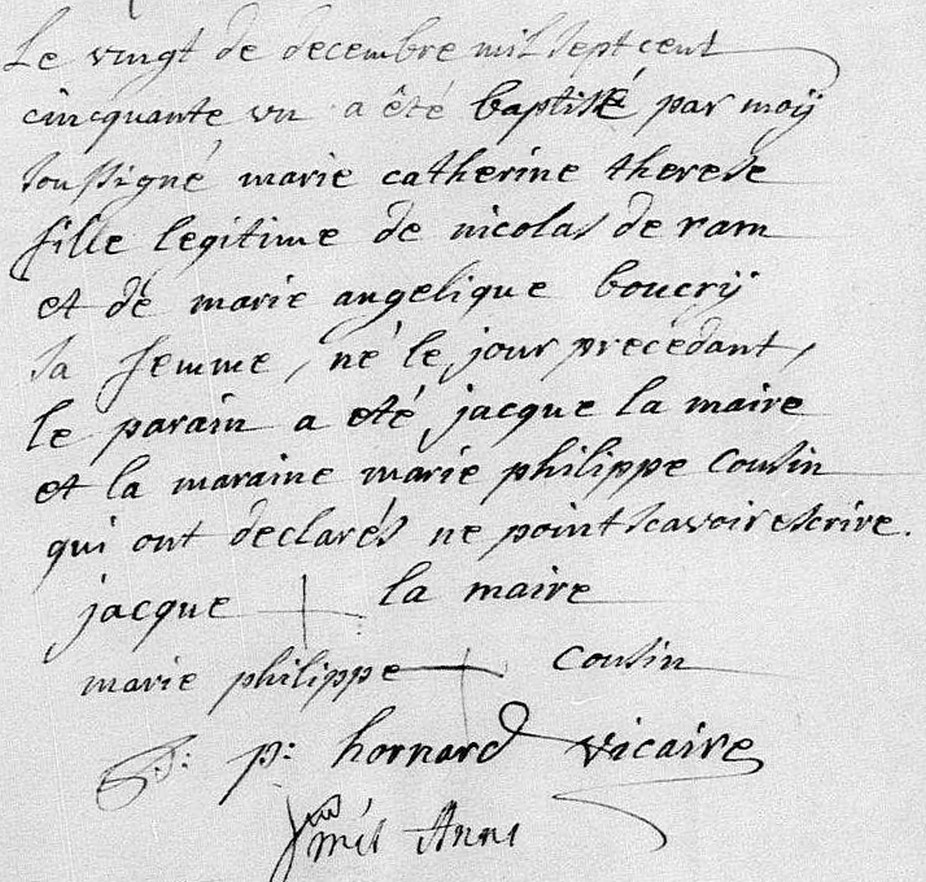 Le vingt de decembre mil sept cent
cincquante vn a êté baptisé par moÿ
soussigné marie catherine therese
fille legitime de nicolas de ram
et dé marie angelique boucrÿ
sa femme, né le jour precedant,
le parain a eté jacque la maire
et la maraine marie philippe cousin
qui ont declarés ne point scavoir escrire.
jacque + la maire
marie philippe + cousin
p: hornard vicaire